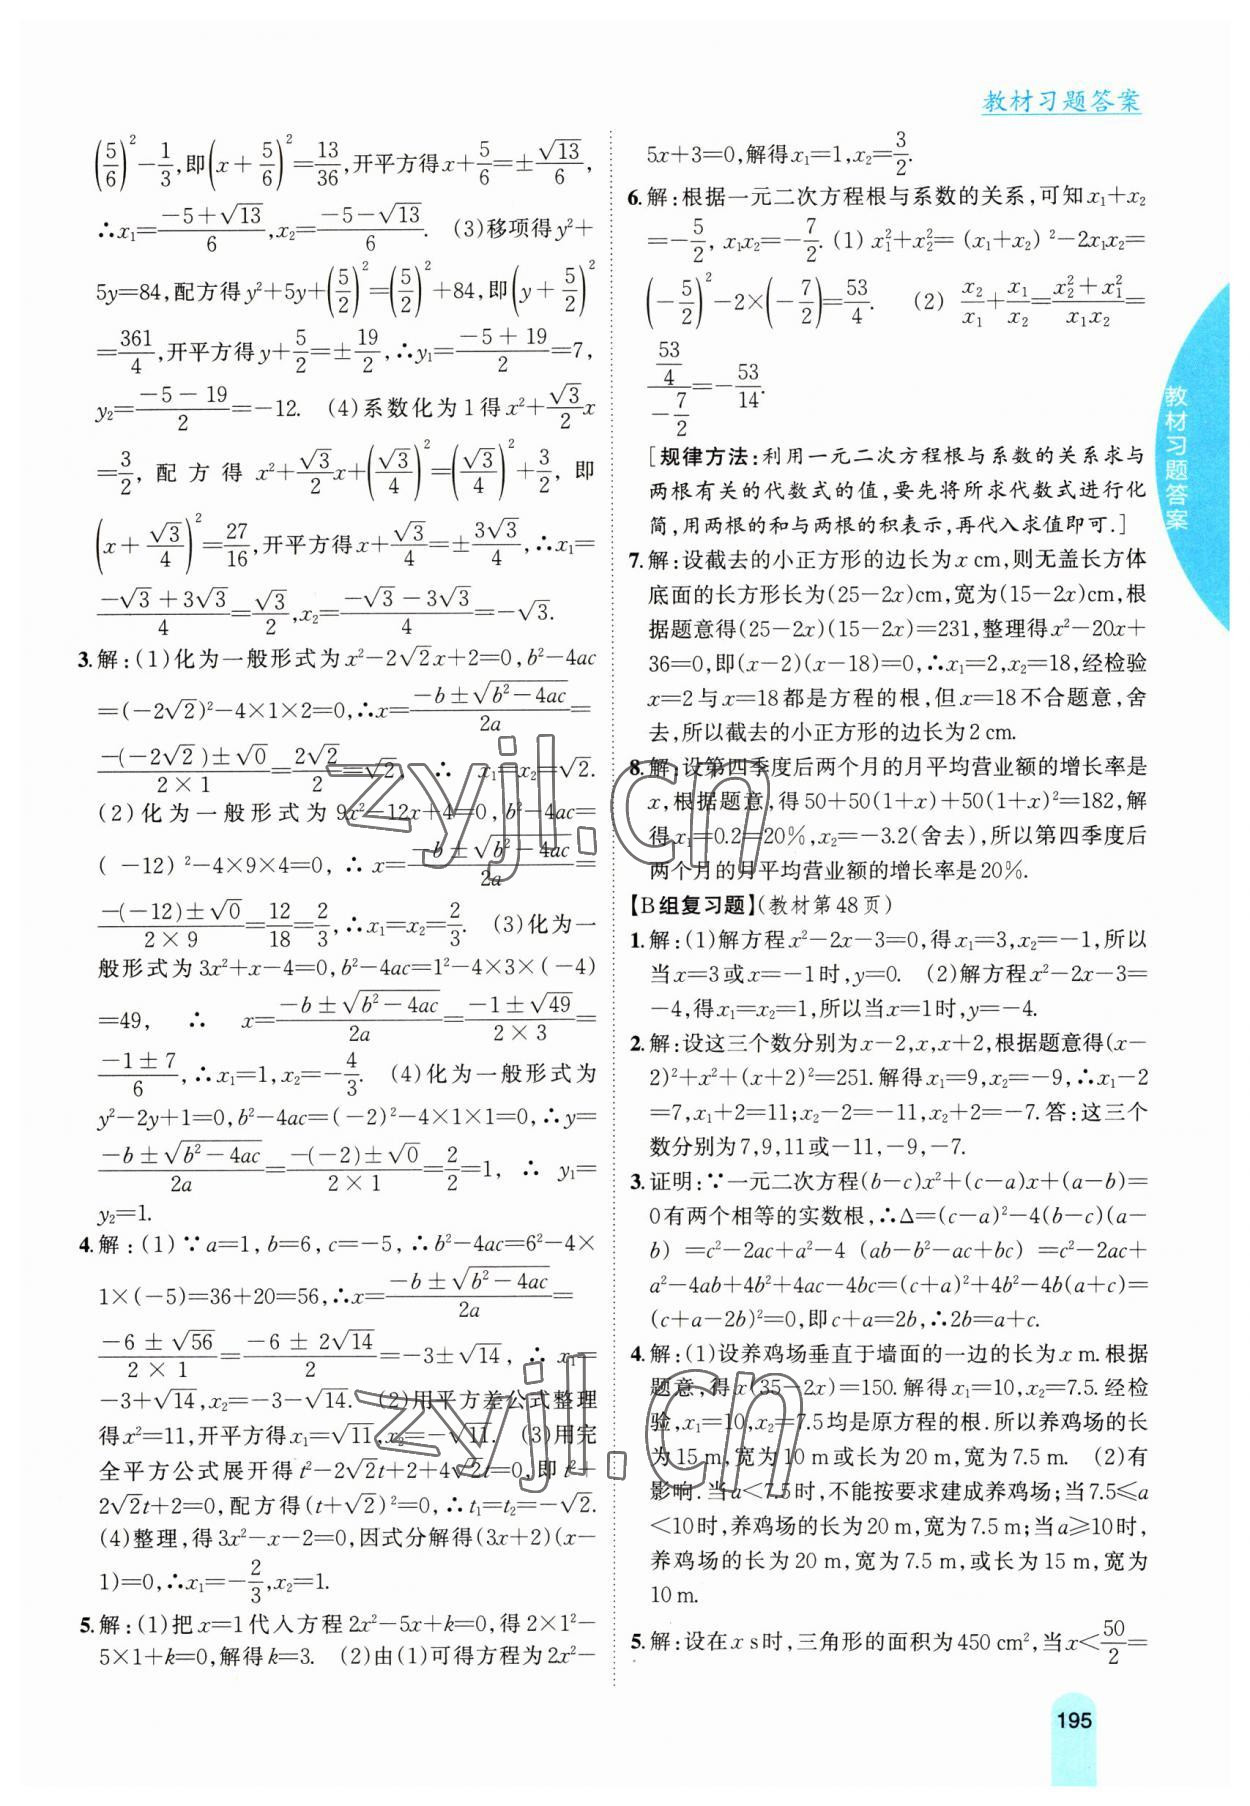 教材习题答案
(5/6)²-1/3,即(x+5/6)²=13/36,开平方得x+5/6=±√13/6,
∴x₁=(-5+√13)/6,x₂=(-5-√13)/6. (3)移项得y²+
5y=84,配方得y²+5y+(5/2)²=(5/2)²+84,即(y+5/2)²
=361/4,开平方得y+5/2=±19/2,∴y₁=(-5+19)/2=7,
y₂=(-5-19)/2=-12. (4)系数化为1得x²+(√3/2)x
=3/2,配方得x²+(√3/2)x+(√3/4)²=(√3/4)²+3/2,即
(x+√3/4)²=27/16,开平方得x+√3/4=±3√3/4,∴x₁=
(-√3+3√3)/4=√3/2,x₂=(-√3-3√3)/4=-√3.
3.解:(1)化为一般形式为x²-2√2x+2=0,b²-4ac
=(-2√2)²-4×1×2=0,∴x=(-b±√(b²-4ac))/2a=
(-(-2√2)±√0)/(2×1)=2√2/2=√2, ∴ x₁=x₂=√2.
(2)化为一般形式为9x²-12x+4=0,b²-4ac=
(-12)²-4×9×4=0,∴x=(-b±√(b²-4ac))/2a=
(-(-12)±√0)/(2×9)=12/18=2/3,∴x₁=x₂=2/3. (3)化为一
般形式为3x²+x-4=0,b²-4ac=1²-4×3×(-4)
=49, ∴ x=(-b±√(b²-4ac))/2a=(-1±√49)/(2×3)=
(-1±7)/6,∴x₁=1,x₂=-4/3. (4)化为一般形式为
y²-2y+1=0,b²-4ac=(-2)²-4×1×1=0,∴y=
(-b±√(b²-4ac))/2a=(-(-2)±√0)/(2×1)=2/2=1, ∴ y₁=
y₂=1.
4.解:(1)∵a=1,b=6,c=-5,∴b²-4ac=6²-4×
1×(-5)=36+20=56,∴x=(-b±√(b²-4ac))/2a=
(-6±√56)/(2×1)=(-6±2√14)/2=-3±√14, ∴ x₁=
-3+√14,x₂=-3-√14. (2)用平方差公式整理
得x²=11,开平方得x₁=√11,x₂=-√11. (3)用完
全平方公式展开得t²-2√2t+2+4√2t=0,即t²+
2√2t+2=0,配方得(t+√2)²=0,∴t₁=t₂=-√2.
(4)整理,得3x²-x-2=0,因式分解得(3x+2)(x-
1)=0,∴x₁=-2/3,x₂=1.
5.解:(1)把x=1代入方程2x²-5x+k=0,得2×1²-
5×1+k=0,解得k=3. (2)由(1)可得方程为2x²-
5x+3=0,解得x₁=1,x₂=3/2.
6.解:根据一元二次方程根与系数的关系,可知x₁+x₂
=-5/2,x₁x₂=-7/2.(1)x₁²+x₂²=(x₁+x₂)²-2x₁x₂=
(-5/2)²-2×(-7/2)=53/4. (2) x₂/x₁+x₁/x₂=(x₂²+x₁²)/x₁x₂=
(53/4)/(-7/2)=-53/14.
[规律方法:利用一元二次方程根与系数的关系求与
两根有关的代数式的值,要先将所求代数式进行化
简,用两根的和与两根的积表示,再代入求值即可.]
7.解:设截去的小正方形的边长为x cm,则无盖长方体
底面的长方形长为(25-2x)cm,宽为(15-2x)cm,根
据题意得(25-2x)(15-2x)=231,整理得x²-20x+
36=0,即(x-2)(x-18)=0,∴x₁=2,x₂=18,经检验
x=2与x=18都是方程的根,但x=18不合题意,舍
去,所以截去的小正方形的边长为2 cm.
8.解:设第四季度后两个月的月平均营业额的增长率是
x,根据题意,得50+50(1+x)+50(1+x)²=182,解
得x₁=0.2=20%,x₂=-3.2(舍去),所以第四季度后
两个月的月平均营业额的增长率是20%.
【B组复习题】(教材第48页)
1.解:(1)解方程x²-2x-3=0,得x₁=3,x₂=-1,所以
当x=3或x=-1时,y=0. (2)解方程x²-2x-3=
-4,得x₁=x₂=1,所以当x=1时,y=-4.
2.解:设这三个数分别为x-2,x,x+2,根据题意得(x-
2)²+x²+(x+2)²=251.解得x₁=9,x₂=-9,∴x₁-2
=7,x₁+2=11;x₂-2=-11,x₂+2=-7.答:这三个
数分别为7,9,11或-11,-9,-7.
3.证明:∵一元二次方程(b-c)x²+(c-a)x+(a-b)=
0有两个相等的实数根,∴Δ=(c-a)²-4(b-c)(a-
b)=c²-2ac+a²-4(ab-b²-ac+bc)=c²-2ac+
a²-4ab+4b²+4ac-4bc=(c+a)²+4b²-4b(a+c)=
(c+a-2b)²=0,即c+a=2b,∴2b=a+c.
4.解:(1)设养鸡场垂直于墙面的一边的长为x m.根据
题意,得x(35-2x)=150.解得x₁=10,x₂=7.5.经检
验,x₁=10,x₂=7.5均是原方程的根.所以养鸡场的长
为15 m,宽为10 m或长为20 m,宽为7.5 m. (2)有
影响.当a<7.5时,不能按要求建成养鸡场;当7.5≤a
<10时,养鸡场的长为20 m,宽为7.5 m;当a≥10时,
养鸡场的长为20 m,宽为7.5 m,或长为15 m,宽为
10 m.
5.解:设在x s时,三角形的面积为450 cm²,当x<50/2=
教材习题答案
195
zyjl.cn
zyjl.cn